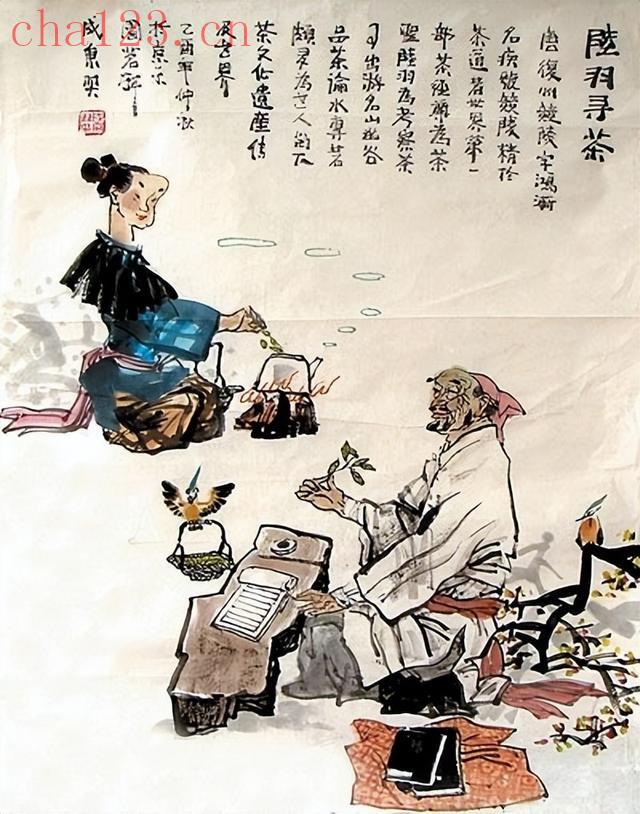 cha123.cn
陸羽寻茶
唐復州竟陵字鴻漸
名疾號竟陵精於
茶道著世界第一
部茶经尊為茶
聖陸羽為考察茶
出游名山幽谷
品茶論水專著
頗多為世人留下
茶文化遺產传
世界
乙酉年仲秋
於京东
成東